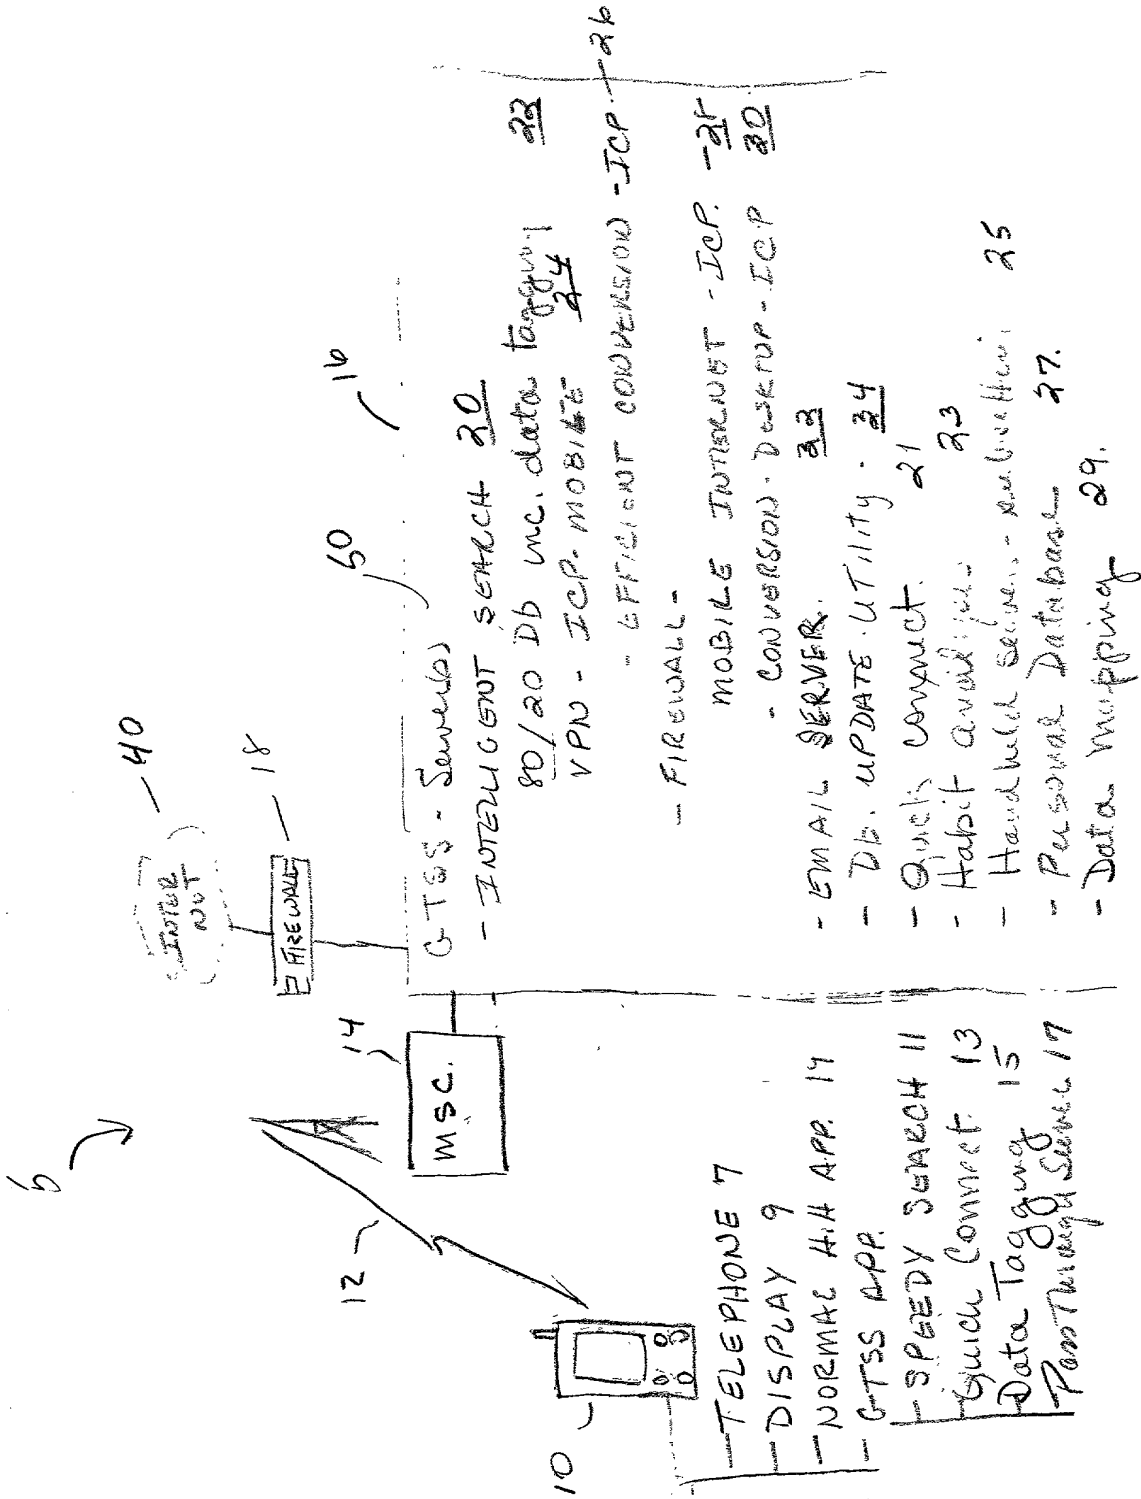 6
40
INTER
NET
18
FIREWALL
12
14
MSC.
10
-TELEPHONE 7
-DISPLAY 9
-NORMAL H.H APP. 19
- GTSS APP.
- SPEEDY SEARCH 11
Quick Connect. 13
Data Tagging 15
PassThrough Server 17
50
16
GTSS - Servers
- INTELLIGENT SEARCH 20
80/20 Db inc. data tagging 22
VPN - ICP. MOBILE 24
- EFFICIENT CONVERSION - ICP. 26
- FIREWALL -
MOBILE INTERNET - ICP. - 28
- CONVERSION - DESKTOP - ICP 30
- EMAIL SERVER. 32
- Db. UPDATE UTILITY. 34
- Quick connect. 21
- Habit 23
- Handheld 25
- Personal Database 27.
- Data Mapping 29.